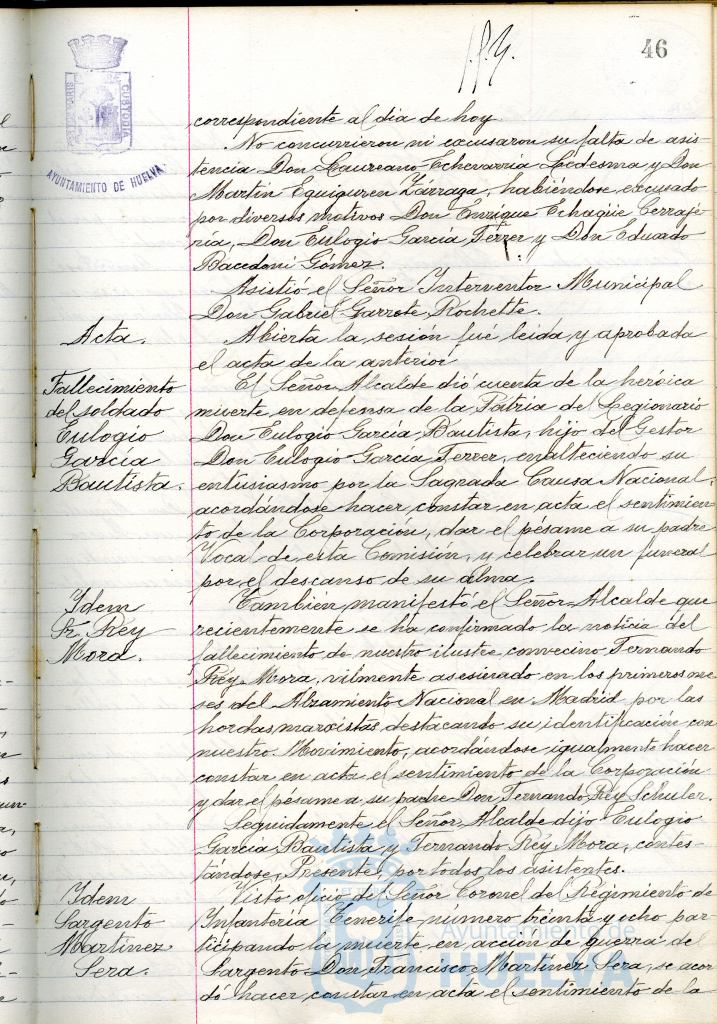 46
PORTUS MARIS
CUSTODIA
AYUNTAMIENTO DE HUELVA
correspondiente al dia de hoy
No concurrieron ni excusaron su falta de asis-
tencia Don Laureano Echevarría Ledesma y Don
Martin Eguiguren Lárraga, habiéndose excusado
por diversos motivos Don Enrique Echagüe Cerraje-
ría, Don Eulogio García Ferrer y Don Eduardo
Bacedoni Gómez.
Asistió el Señor Interventor Municipal
Don Gabriel Garrote Rochette.
Acta.
Abierta la sesión fué leida y aprobada
el acta de la anterior
Fallecimiento
del soldado
Eulogio
García
Bautista.
El Señor Alcalde dió cuenta de la heróica
muerte en defensa de la Pátria del Legionario
Don Eulogio García Bautista, hijo del Gestor
Don Eulogio García Ferrer, enalteciendo su
entusiasmo por la Sagrada Causa Nacional;
acordándose hacer constar en acta el sentimien-
to de la Corporación, dar el pésame a su padre
Vocal de esta Comisión, y celebrar un funeral
por el descanso de su alma.
Idem
Sr. Rey
Mora.
También manifestó el Señor Alcalde que
recientemente se ha confirmado la noticia del
fallecimiento de nuestro ilustre convecino Fernando
Rey Mora, vilmente asesinado en los primeros me-
ses del Alzamiento Nacional en Madrid por las
hordas marxistas destacando su identificación con
nuestro Movimiento, acordándose igualmente hacer
constar en acta el sentimiento de la Corporación
y dar el pésame a su padre Don Fernando Rey Schuler.
Seguidamente el Señor Alcalde dijo Eulogio
García Bautista y Fernando Rey Mora, contes-
tándose, Presente, por todos los asistentes.
Idem
Sargento
Martinez
Sera.
Visto oficio del Señor Coronel del Regimiento de
Infantería Tenerife número treinta y ocho par-
ticipando la muerte en acción de guerra del
Sargento Don Francisco Martinez Sera, se acor-
dó hacer constar en acta el sentimiento de la
Ayuntamiento de
HUELVA